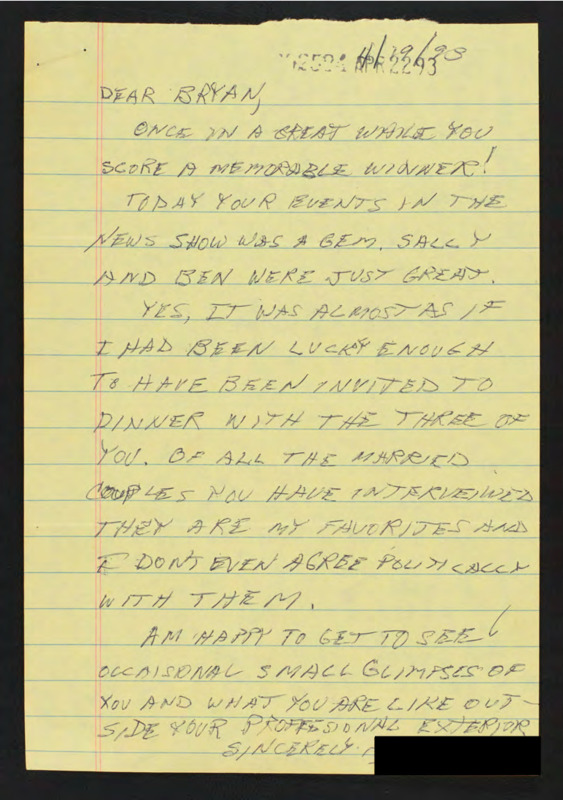 4/19/93
APR 22 93
DEAR BRYAN,
ONCE IN A GREAT WHILE YOU
SCORE A MEMORABLE WINNER!
TODAY YOUR EVENTS IN THE
NEWS SHOW WAS A GEM. SALLY
AND BEN WERE JUST GREAT.
YES, IT WAS ALMOST AS IF
I HAD BEEN LUCKY ENOUGH
TO HAVE BEEN INVITED TO
DINNER WITH THE THREE OF
YOU. OF ALL THE MARRIED
COUPLES YOU HAVE INTERVEIWED
THEY ARE MY FAVORITES AND
I DON'T EVEN AGREE POLITICALLY
WITH THEM.
AM HAPPY TO GET TO SEE
OCCAISONAL SMALL GLIMPSES OF
YOU AND WHAT YOU ARE LIKE OUT-
SIDE YOUR PROFFESIONAL EXTERIOR
SINCERELY.